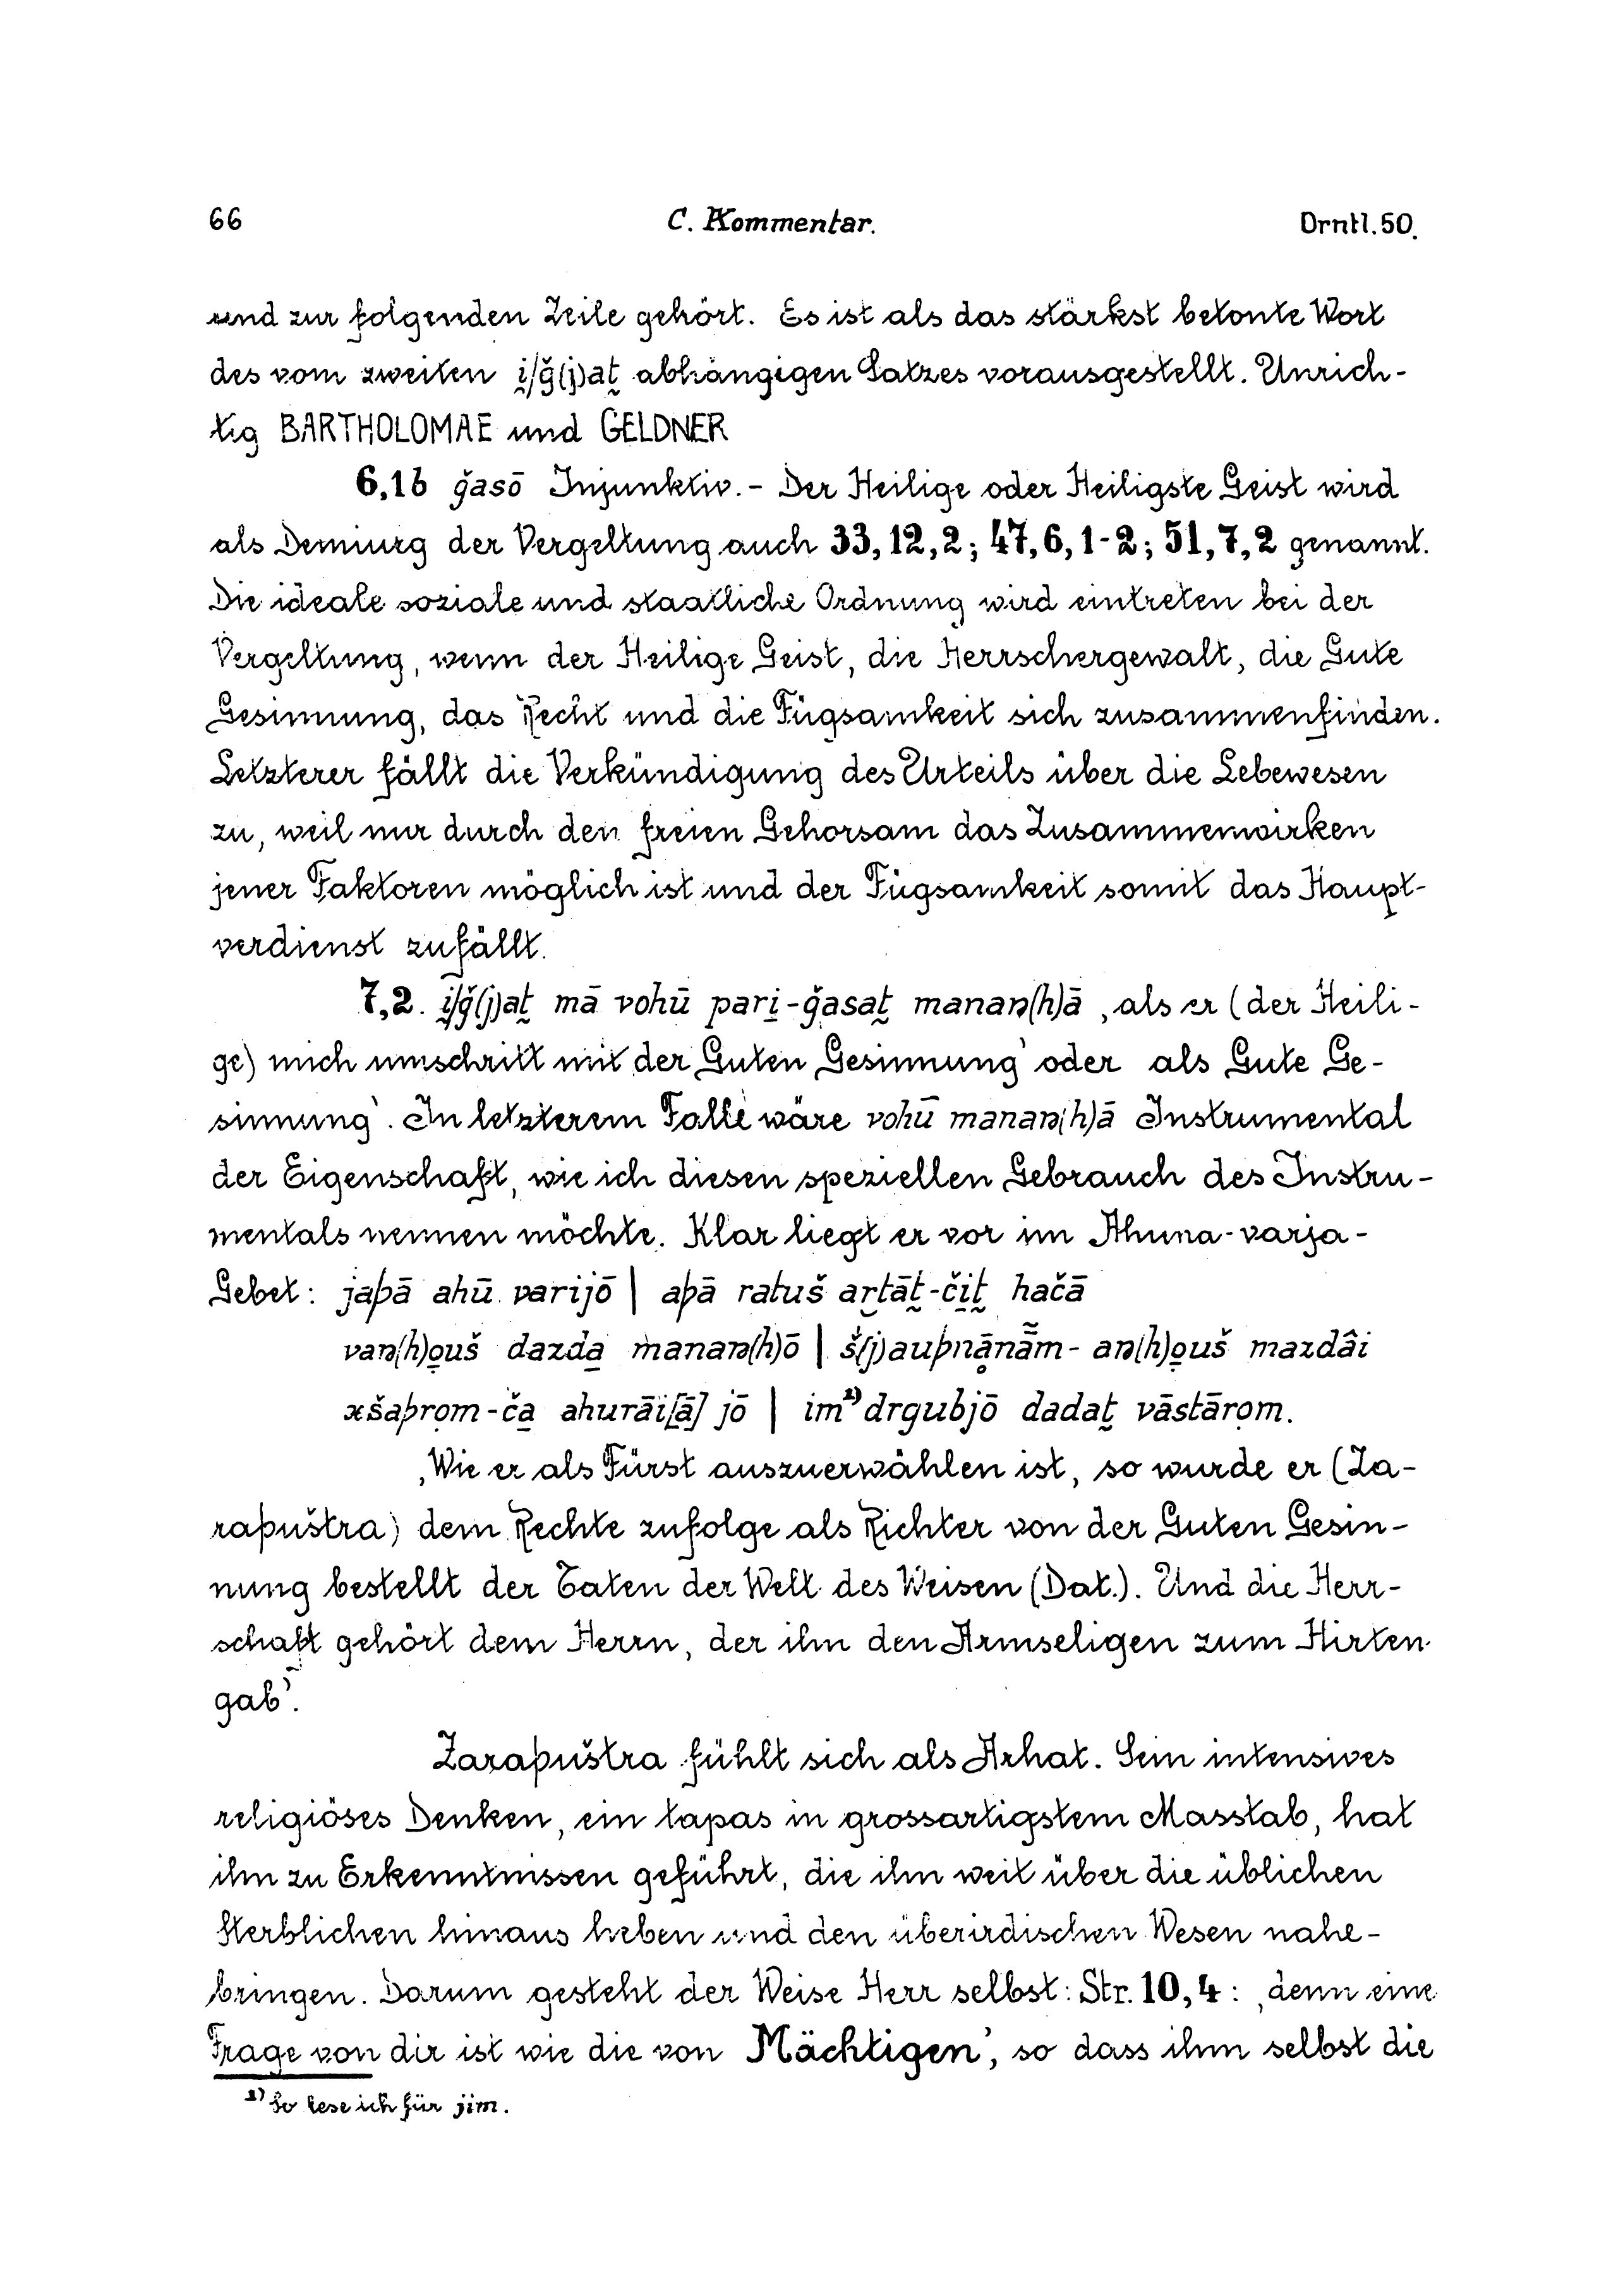 66 C. Kommentar. Orntl.50.
und zur folgenden Zeile gehört. Es ist als das stärkst betonte Wort
des vom zweiten i̯/ǧ(j)at̰ abhängigen Satzes vorausgestellt. Unrich-
tig BARTHOLOMAE und GELDNER
6,1b ǧasō Injunktiv. - Der Heilige oder Heiligste Geist wird
als Demiurg der Vergeltung auch 33,12,2; 47,6,1-2; 51,7,2 genannt.
Die ideale soziale und staatliche Ordnung wird eintreten bei der
Vergeltung, wenn der Heilige Geist, die Herrschergewalt, die Gute
Gesinnung, das Recht und die Fügsamkeit sich zusammenfinden.
Letzterer fällt die Verkündigung des Urteils über die Lebewesen
zu, weil nur durch den freien Gehorsam das Zusammenwirken
jener Faktoren möglich ist und der Fügsamkeit somit das Haupt-
verdienst zufällt.
7,2. i̯/ǧ(j)at̰ mā vohū pari̱-ǧasat̰ manaŋ(h)ā ‚als er (der Heili-
ge) mich umschritt mit der Guten Gesinnung‛ oder als Gute Ge-
sinnung‛. In letzterem Falle wäre vohū manaŋ(h)ā Instrumental
der Eigenschaft, wie ich diesen speziellen Gebrauch des Instru-
mentals nennen möchte. Klar liegt er vor im Ahuna-varja-
Gebet: jaþā ahū varijō | aþā ratuš ar̯tāt̰-či̱t̰ hačā
vaŋ(h)o̱uš dazda̱ manaŋ(h)ō | š(j)auþnḁ̄nā̃m- aŋ(h)o̱uš mazdâi
xšaþrọm-ča̱ ahurāi[ā] jō | im¹⁾ drgubjō dadat̰ vāstārọm.
‚Wie er als Fürst auszuerwählen ist, so wurde er (Za-
raþuštra) dem Rechte zufolge als Richter von der Guten Gesin-
nung bestellt der Taten der Welt des Weisen (Dat.). Und die Herr-
schaft gehört dem Herrn, der ihn den Armseligen zum Hirten
gab‛.
Zaraþuštra fühlt sich als Arhat. Sein intensives
religiöses Denken, ein tapas in grossartigstem Masstab, hat
ihn zu Erkenntnissen geführt, die ihn weit über die üblichen
Sterblichen hinaus heben und den überirdischen Wesen nahe-
bringen. Darum gesteht der Weise Herr selbst: Str. 10,4: ‚denn eine
Frage von dir ist wie die von Mächtigen‛, so dass ihm selbst die
¹⁾ So lese ich für jim.